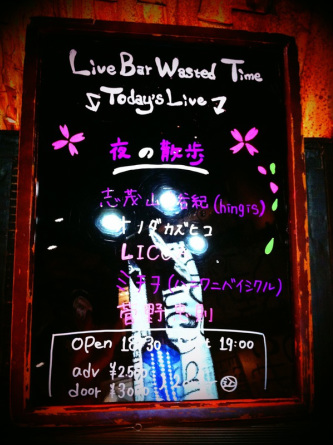 Live Bar Wasted Time
Today's Live
夜の散歩
志茂山 紀(hingis)
オノダカズヒコ
LICO
ミチヲ(ハワニベイシクル)
菅野 則
open 18:30 19:00
adv ¥2500
door ¥3000